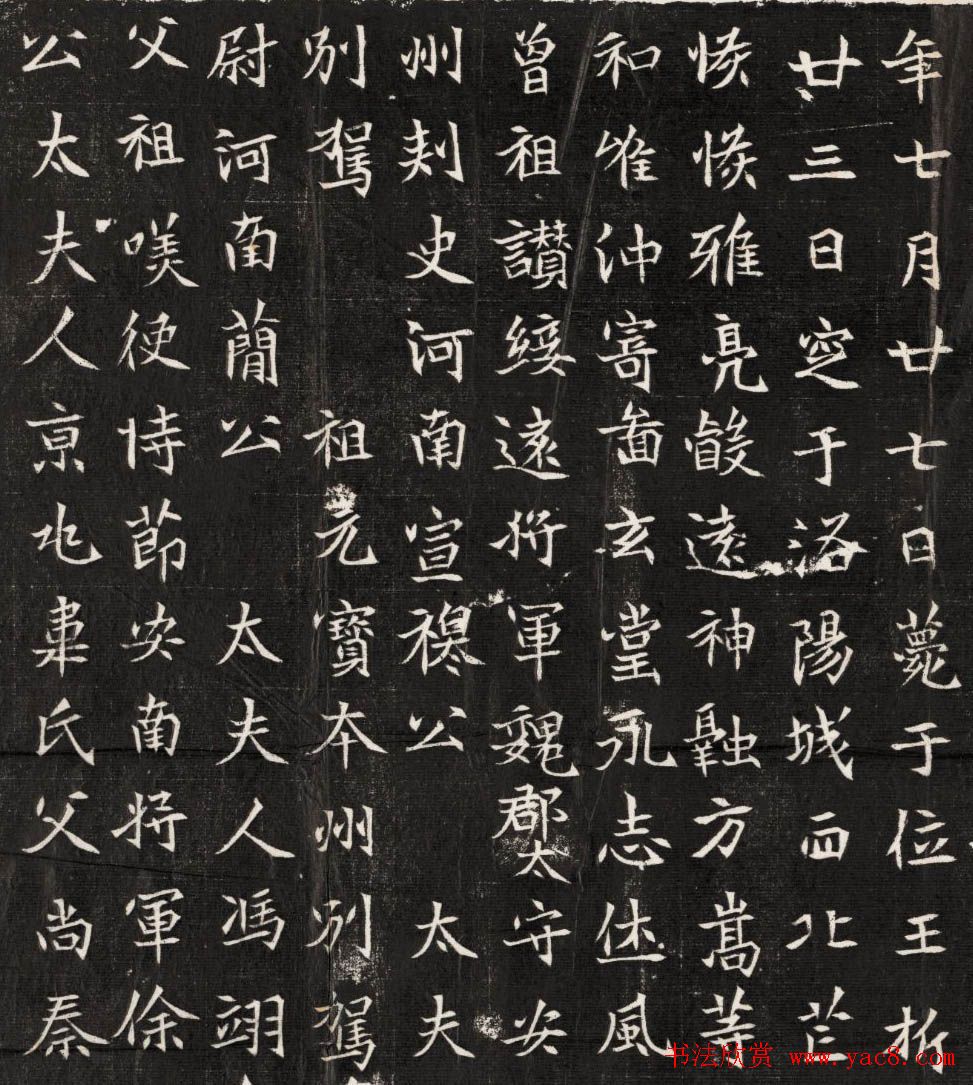 年七月廿七日薨于位王折
廿三日窆于洛陽城西北芒
雅亮遠神融方嵩
和唯沖寄啚玄堂永志休風
曾祖讚綏遠將軍魏郡太守安
州刾史河南宣穆公 太夫
別駕 祖元寶本州別駕
尉河南蕳公 太夫人馮翊
父祖嘆使持節安南將軍徐
公太夫人京兆韋氏父尚秦
书法欣赏 www.yac8.com